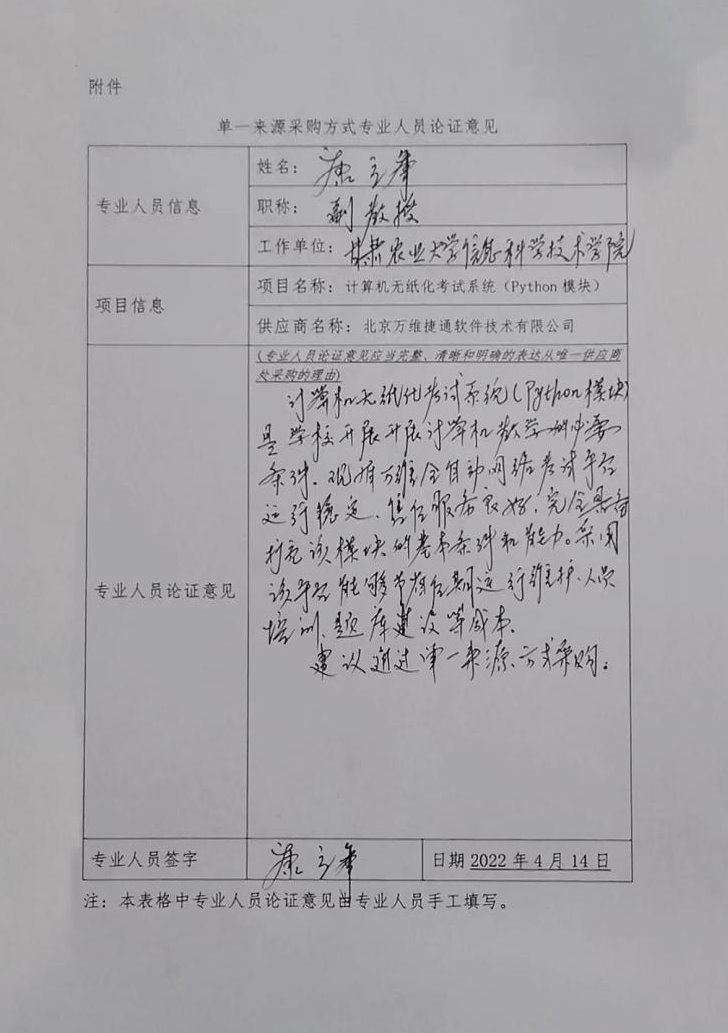 附件
单一来源采购方式专业人员论证意见
专业人员信息
姓名：康立军
职称：副教授
工作单位：甘肃农业大学信息科学技术学院
项目信息
项目名称：计算机无纸化考试系统（Python 模块）
供应商名称：北京万维捷通软件技术有限公司
专业人员论证意见
(专业人员论证意见应当完整、清晰和明确的表达从唯一供应商
处采购的理由)
计算机无纸化考试系统(Python模块)
是学校开展开展计算机教学的必要
条件。现有万维全自动网络考试平台
运行稳定、售后服务良好，完全具备
扩充该模块的基本条件和能力。采用
该平台能够节省后期运行维护、人员
培训、题库建设等成本。
建议通过单一来源方式采购。
专业人员签字
康立军
日期 2022 年 4 月 14 日
注：本表格中专业人员论证意见由专业人员手工填写。